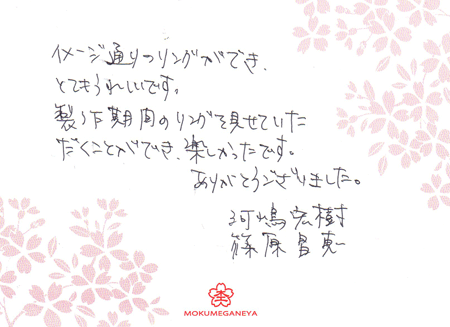 イメージ通りのリングができ、
とてもうれしいです。
製作期間のリングを見せていた
だくことができ、楽しかったです。
ありがとうございました。
河嶋宏樹
篠原昌恵
MOKUMEGANEYA